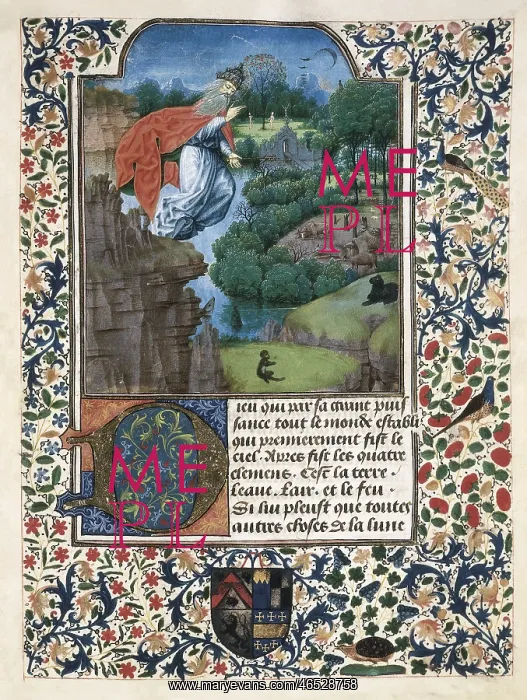 ME
PL
Dieu qui par sa grant puis
sance tout le monde establi
qui premierement fist le
ciel. Apres fist les quatre
elemens. Cest la terre.
Leaue. Lair. et le feu.
Si lui pleust que toutes
autres choses & la lune
ME
PL
www.maryevans.com/46528758